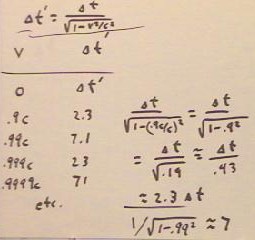 Δt' = Δt / √(1-v²/c²)
v Δt'
0 Δt'
.9c 2.3
.99c 7.1
.999c 23
.9999c 71
etc.
Δt / √(1-(.9c/c)²) = Δt / √(1-.9²)
= Δt / √.19 ≈ Δt / .43
≈ 2.3 Δt
1/√(1-.99²) ≈ 7